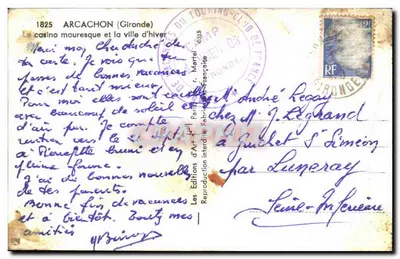 1825 ARCACHON (Gironde)
Le casino mauresque et la ville d'hiver
Merci mon cher de
ta carte. Je vois que tu
passes de bonnes vacances
et c'est tant mieux.
Pour moi elles sont
avec beaucoup de soleil et
d'air pur. Je compte
rentrer vers le
à Pierrefitte bruni et en
pleine forme.
J'ai de bonnes nouvelles
de tes parents.
Bonne fin de vacances
et à bientôt. Toutes mes
amitiés
Les Editions d'Art
Reproduction interdite Fabrication Française
DU TOURING-CLUB DE FRANCE
RF
GIRONDE
Mr André Legay
chez M. J. Legrand
à St Siméon
par Luneray
Seine-Inférieure